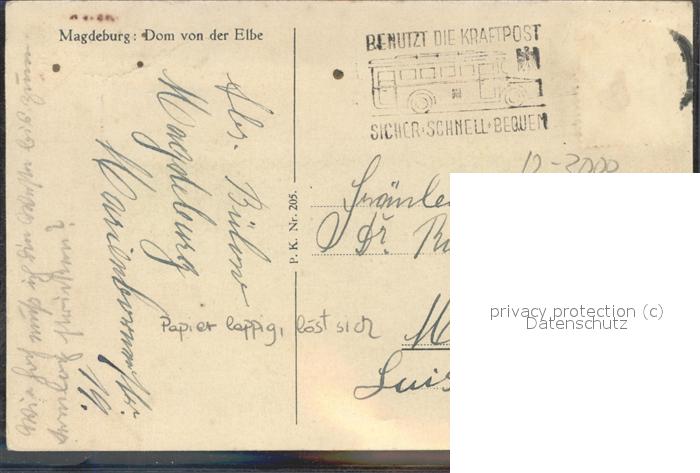 Magdeburg: Dom von der Elbe
BENUTZT DIE KRAFTPOST
SICHER·SCHNELL·BEQUEM
Abs. Bülow
Magdeburg
Marienbornerstr.
19.
P. K. Nr. 205.
12-3000
Fräulein
Dr. Ru
M
Luis
Papier lappig, löst sich
privacy protection (c)
Datenschutz